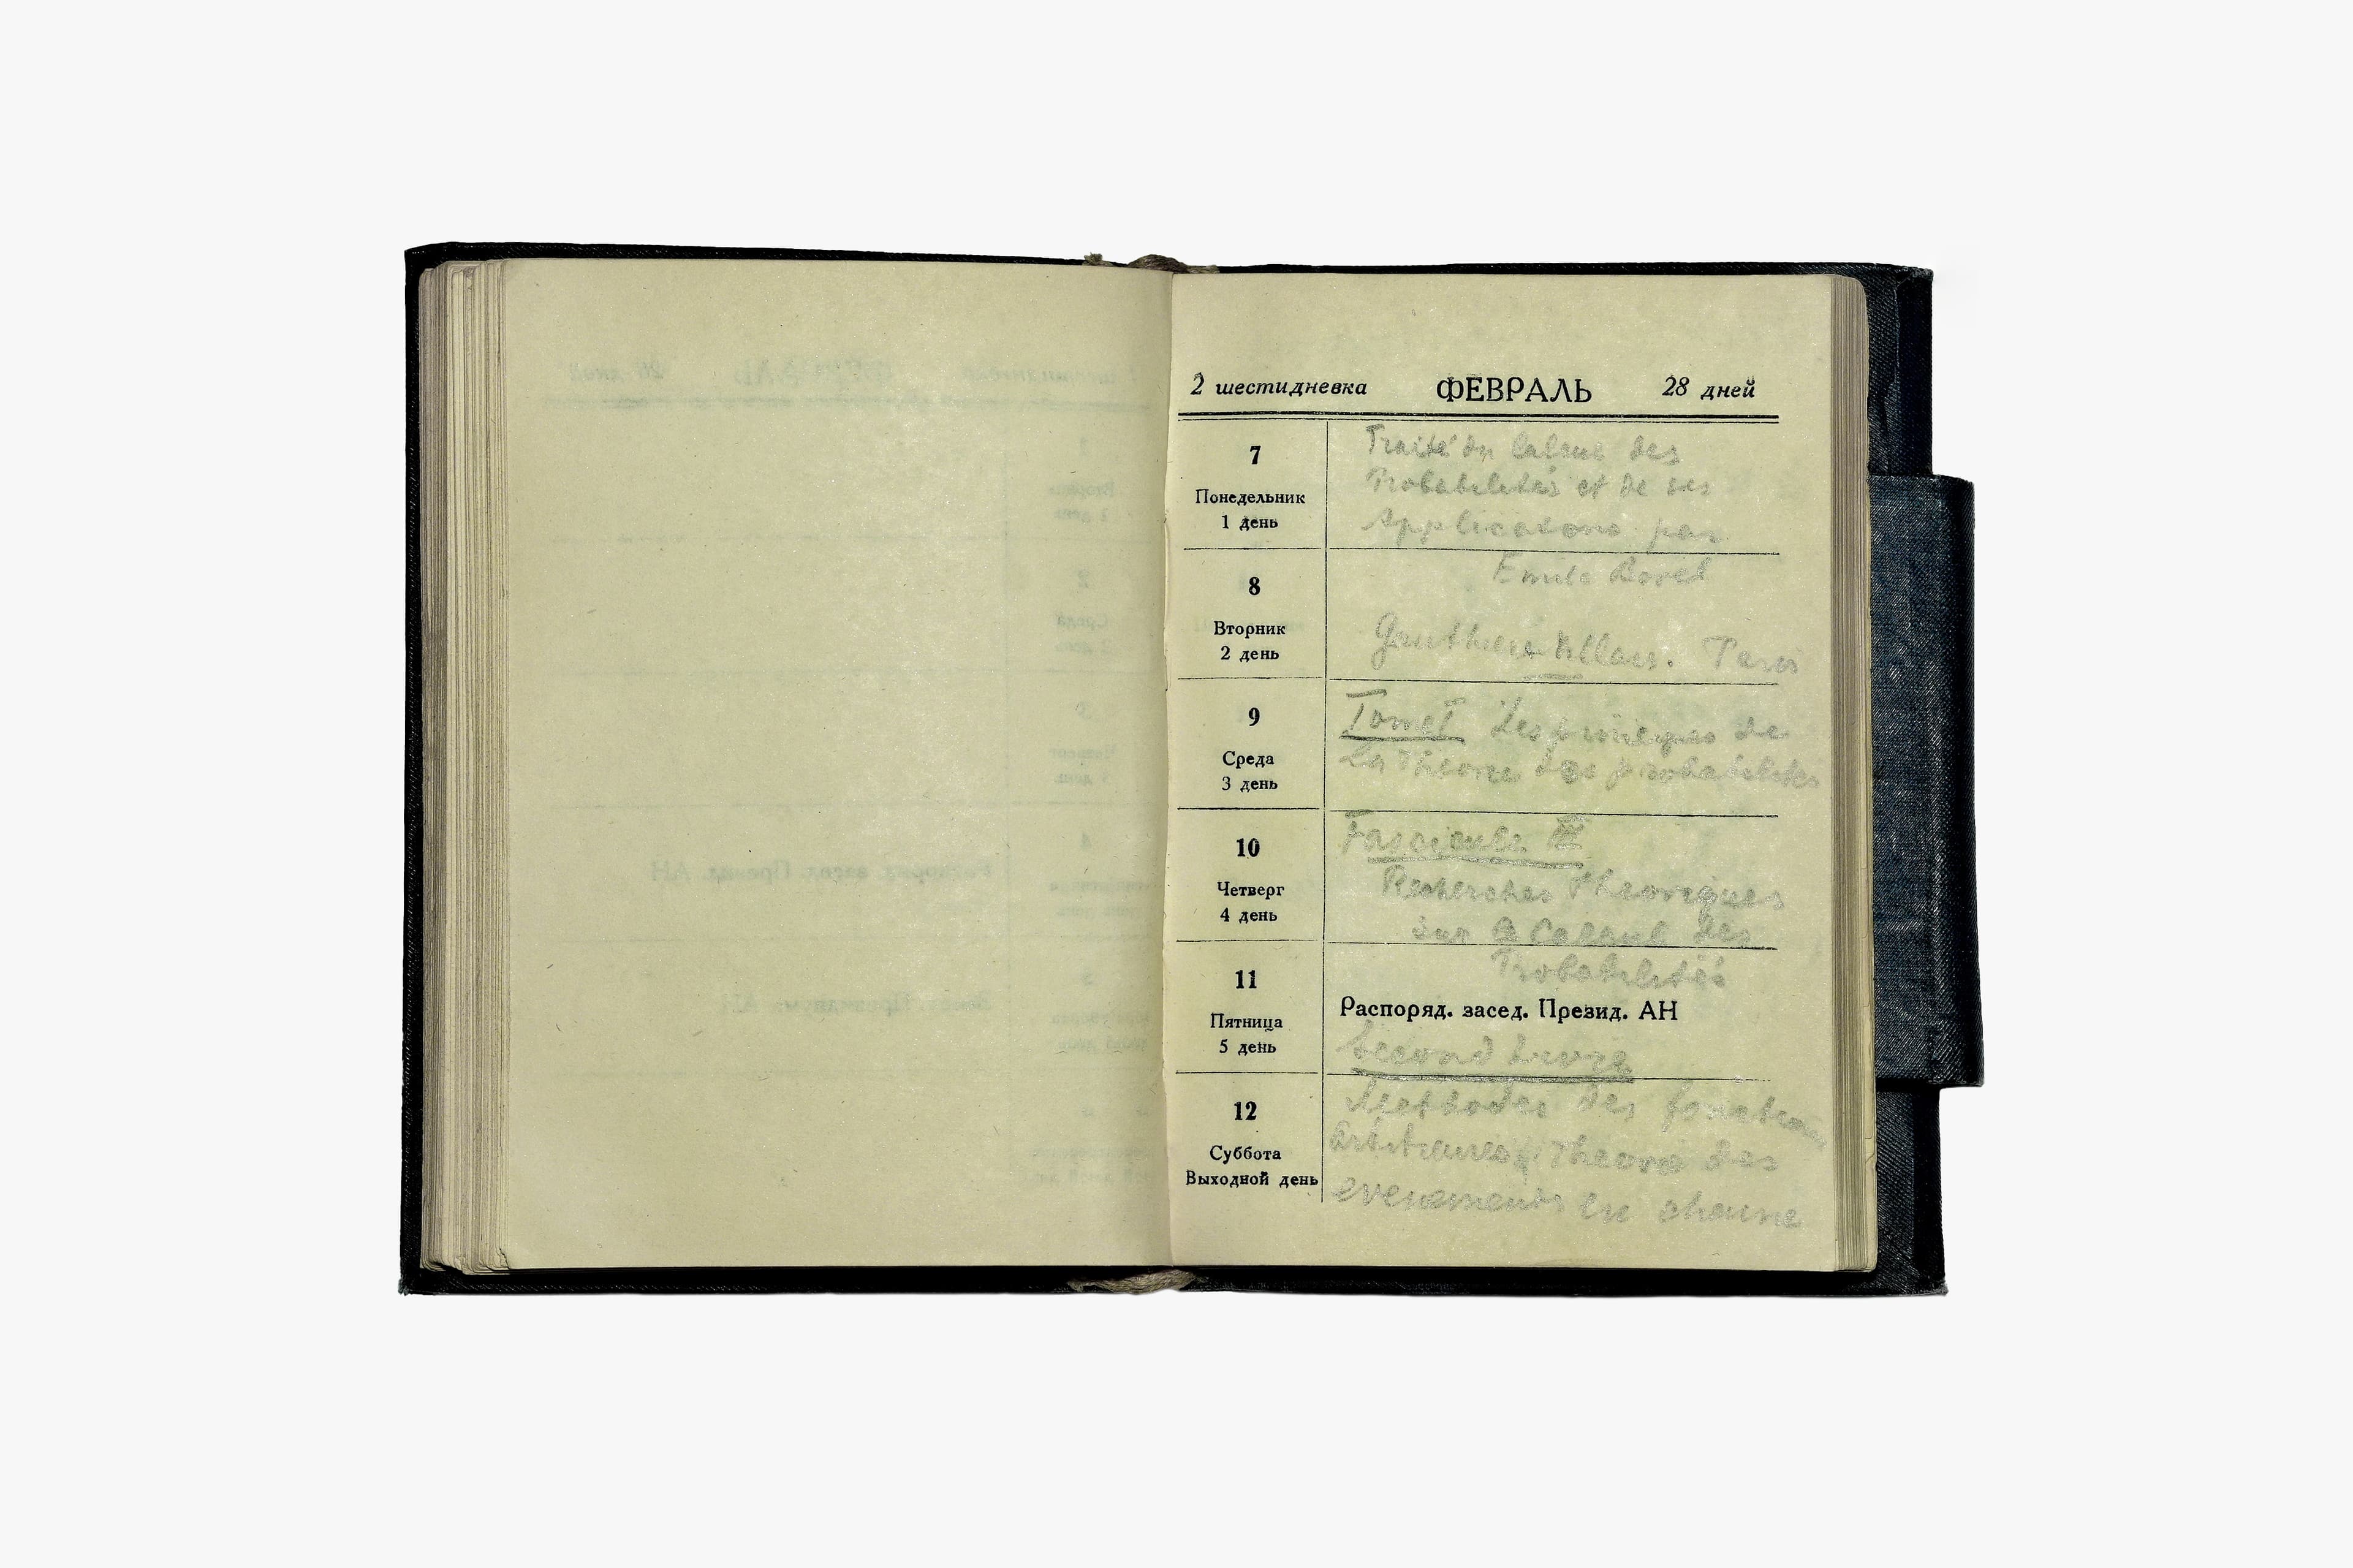 2 шестидневка ФЕВРАЛЬ 28 дней
7
Понедельник
1 день
Traité du Calcul des
Probabilités et de ses
Applications par
8
Вторник
2 день
Emile Borel
Gauthier-Villars. Paris
9
Среда
3 день
Tome I Les principes de
La Theorie des probabilités
10
Четверг
4 день
Fascicule III
Recherches Theoriques
sur Calcul des
11
Пятница
5 день
Probabilités
Распоряд. засед. Презид. АН
Second Livre
12
Суббота
Выходной день
Methodes des fonctions
arbitraires Theorie des
evenements en chaine